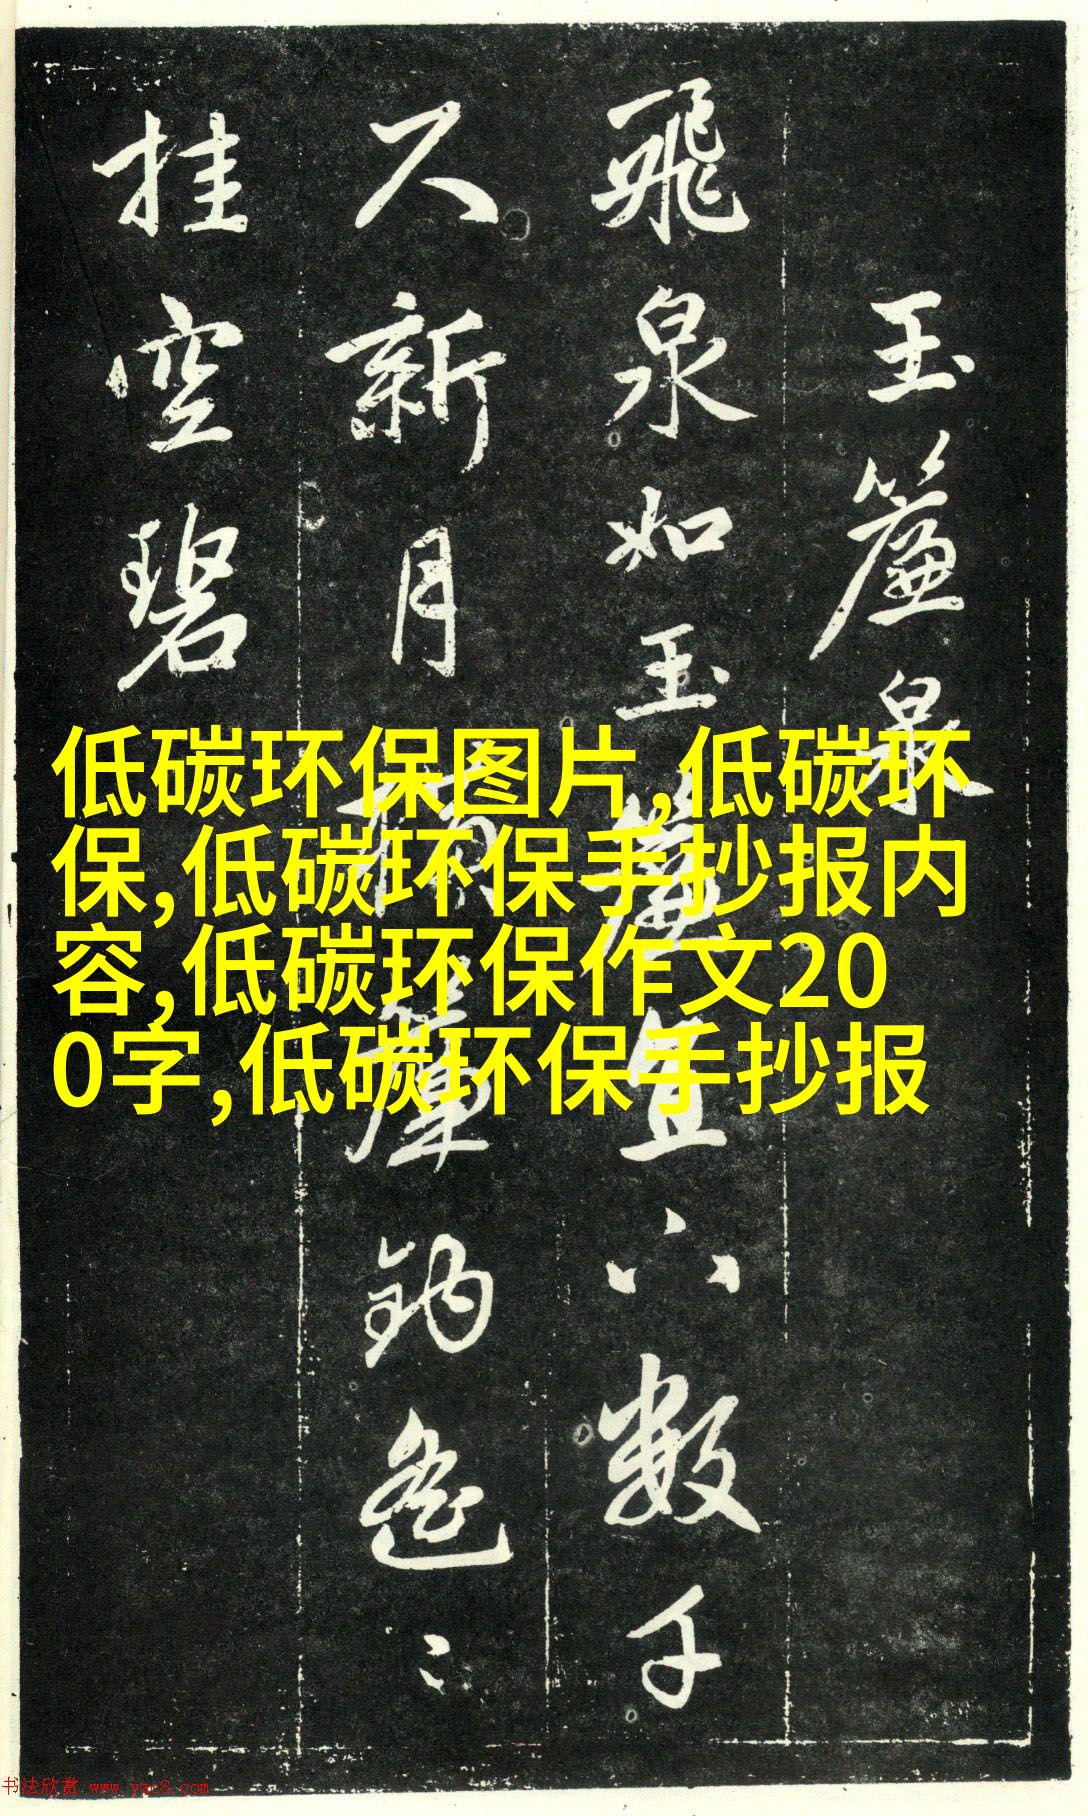 玉簾泉
飛泉如玉簾直下數千
尺新月橫簾鈎遙〻
挂空碧
低碳环保图片,低碳环
保,低碳环保手抄报内
容,低碳环保作文20
0字,低碳环保手抄报
书法欣赏 www.yac8.com